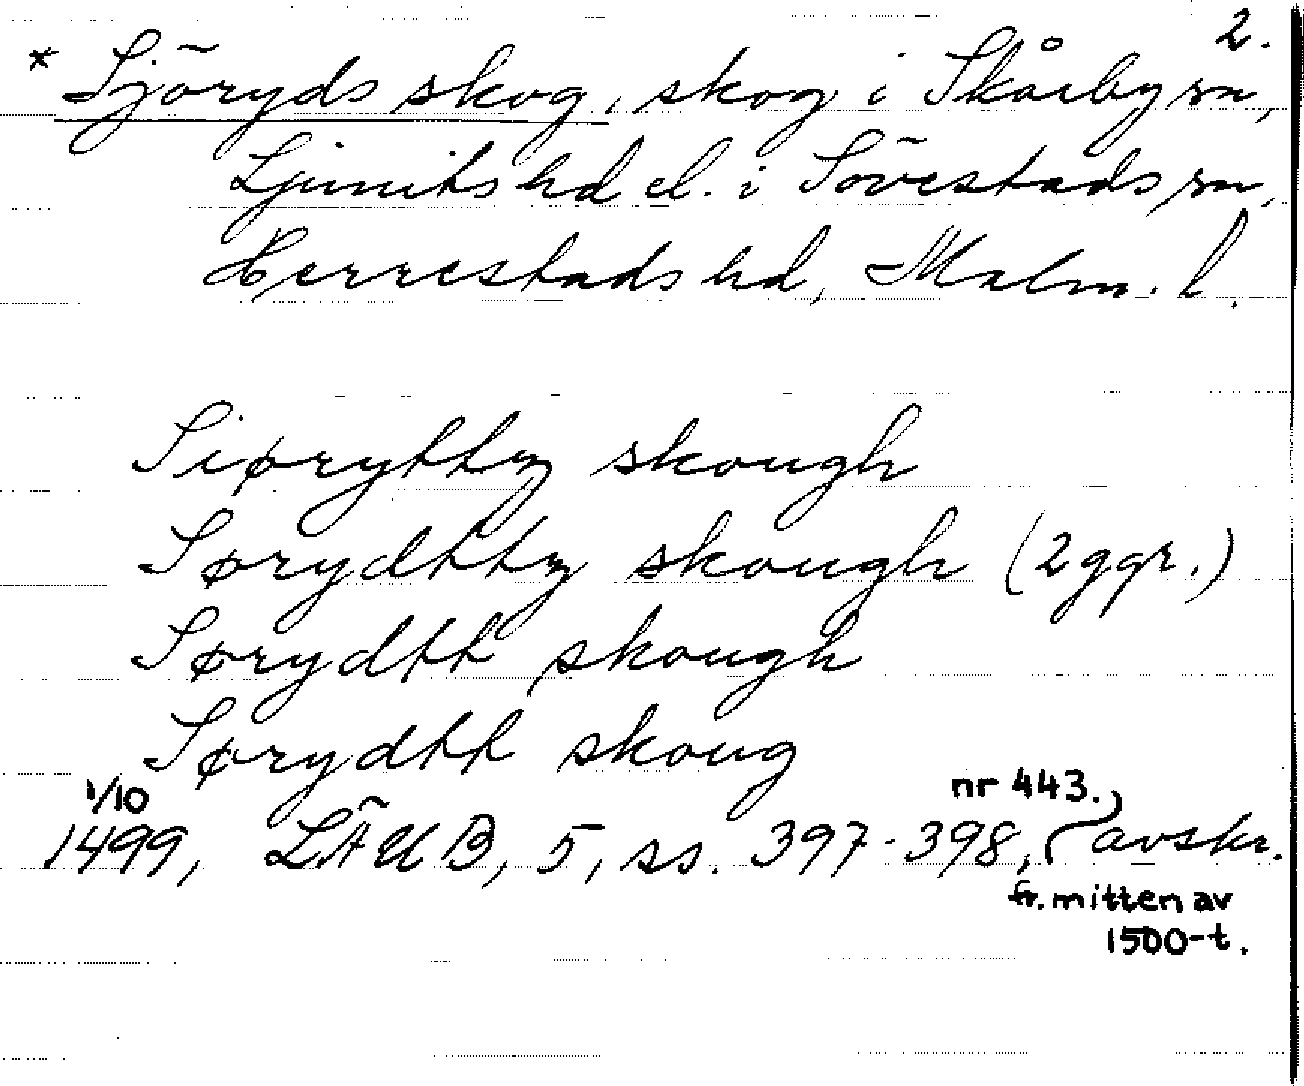 2.
* Sjöryds skog, skog i Skårby sn,
Ljunits hd el. i Sövestads sn,
Herrestads hd, Malm. l.
Siøryttz skough
Sørydttz skough (2 ggr.)
Sørydtt skough
Sørydtt skoug
1/10 nr 443.
1499, LÄUB, 5, ss. 397-398, avskr.
fr. mitten av
1500-t.